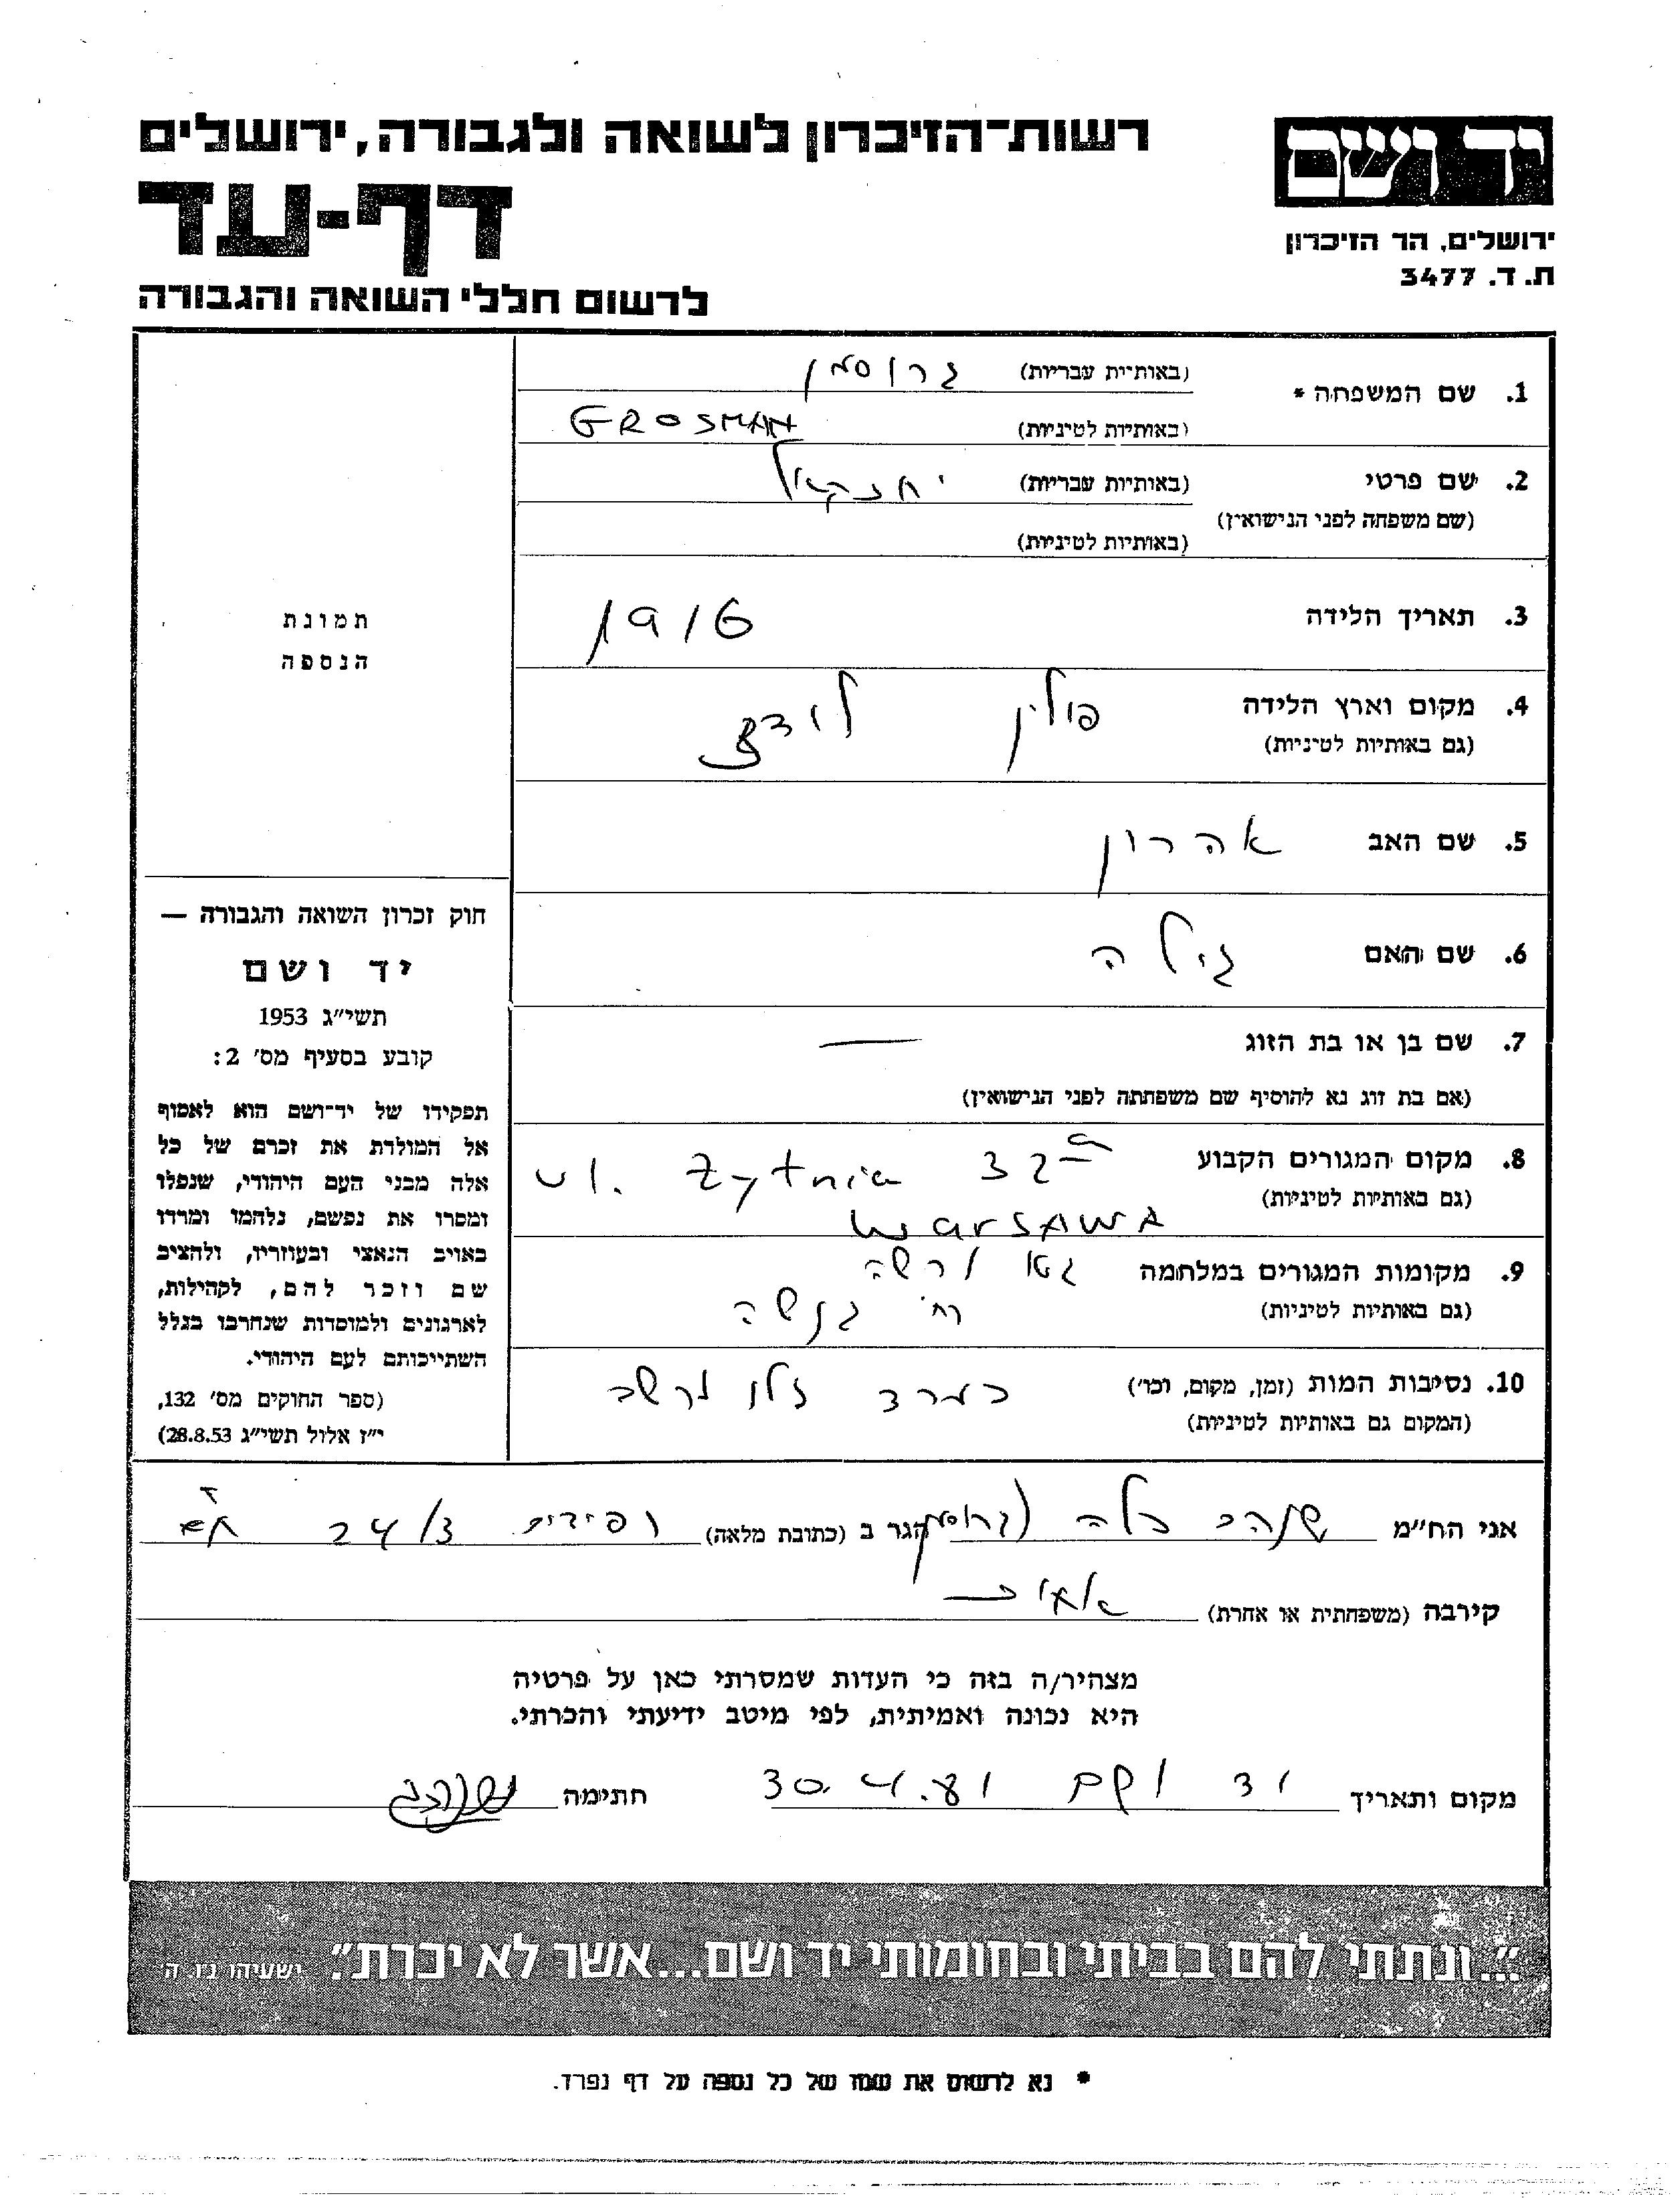 יד ושם
ירושלים, הר הזיכרון
ת.ד. 3477
רשות-הזיכרון לשואה ולגבורה, ירושלים
דף-עד
לרשום חללי השואה והגבורה
1. שם המשפחה * (באותיות עבריות) גרוסמן
(באותיות לטיניות) GROSMAN
2. שם פרטי (באותיות עבריות) יחזקאל
(שם משפחה לפני הנישואין)
(באותיות לטיניות)
3. תאריך הלידה 1916
4. מקום וארץ הלידה פולין לודז
(גם באותיות לטיניות)
5. שם האב אהרון
6. שם האם גילה
7. שם בן או בת הזוג —
(אם בת זוג נא להוסיף שם משפחתה לפני הנישואין)
8. מקום המגורים הקבוע ul. Zytnia 32a
(גם באותיות לטיניות) WarSAWA
9. מקומות המגורים במלחמה גטו ורשה
(גם באותיות לטיניות) רח' גנשה
10. נסיבות המות (זמן, מקום, וכו') במרד גטו ורשה
(המקום גם באותיות לטיניות)
תמונת
הנספה
חוק זכרון השואה והגבורה —
יד ושם
תשי״ג 1953
קובע בסעיף מס׳ 2:
תפקידו של יד-ושם הוא לאסוף
אל המולדת את זכרם של כל
אלה מבני העם היהודי, שנפלו
ומסרו את נפשם, נלחמו ומרדו
באויב הנאצי ובעוזריו, ולהציב
שם וזכר להם, לקהילות,
לארגונים ולמוסדות שנחרבו בגלל
השתייכותם לעם היהודי.
(ספר החוקים מס׳ 132,
י״ז אלול תשי״ג 28.8.53)
אני הח״מ שנהב (גרוסמן) הגר ב (כתובת מלאה) 24/3
קירבה (משפחתית או אחרת)
מצהיר/ה בזה כי העדות שמסרתי כאן על פרטיה
היא נכונה ואמיתית, לפי מיטב ידיעתי והכרתי.
מקום ותאריך יד ושם 30.4.81 חתימה
״...ונתתי להם בביתי ובחומותי יד ושם...אשר לא יכרת״. ישעיהו נו, ה
* נא לרשום את שמו של כל נספה על דף נפרד.